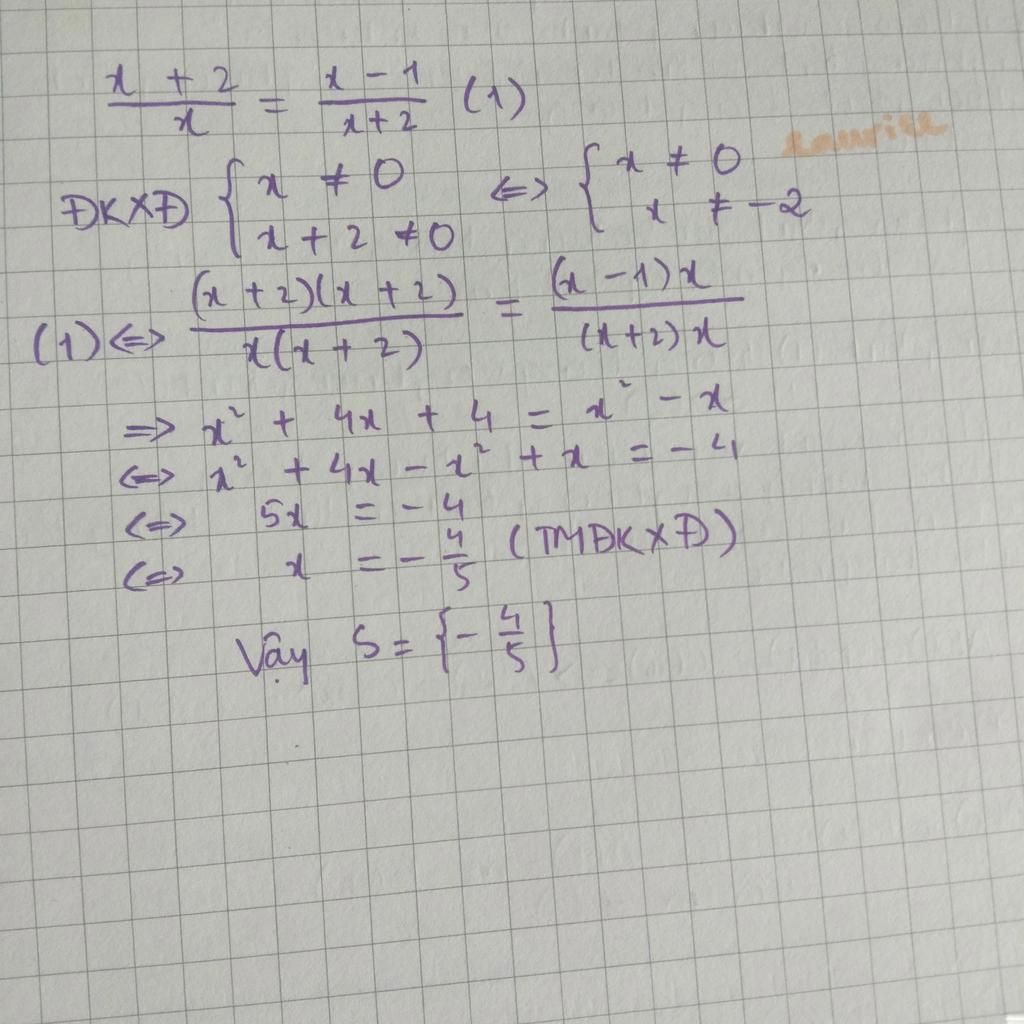 x + 2 / x = x - 1 / x + 2 (1)
ĐKXĐ { x ≠ 0 ; x + 2 ≠ 0 <=> { x ≠ 0 ; x ≠ -2
(1) <=> (x + 2)(x + 2) / x(x + 2) = (x - 1)x / (x+2)x
=> x² + 4x + 4 = x² - x
<=> x² + 4x - x² + x = -4
<=> 5x = -4
<=> x = -4/5 (TMĐKXĐ)
Vậy S = {-4/5}